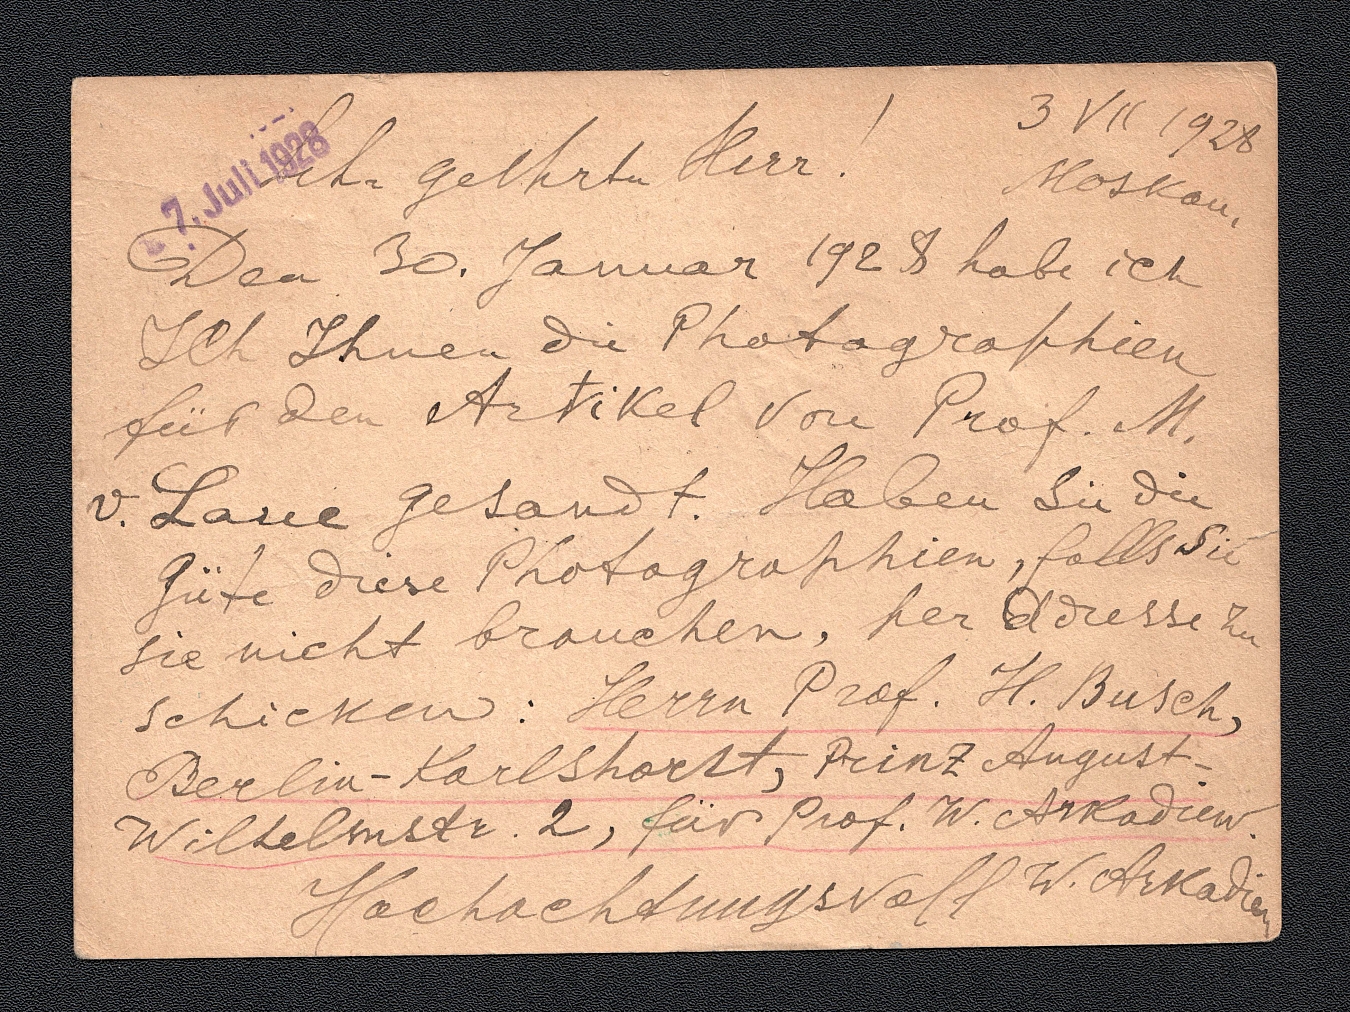 3 VII 1928
Moskau.
7. Juli 1928
Sehr geehrter Herr!
Den 30. Januar 1928 habe ich
Ich Ihnen die Photographien
für den Artikel von Prof. M.
v. Laue gesandt. Haben Sie die
Güte diese Photographien, falls Sie
sie nicht brauchen, per Adresse zu
schicken: Herrn Prof. H. Busch,
Berlin-Karlshorst, Prinz August-
Wilhelmstr. 2, für Prof. W. Arkadiew.
Hochachtungsvoll W. Arkadiew